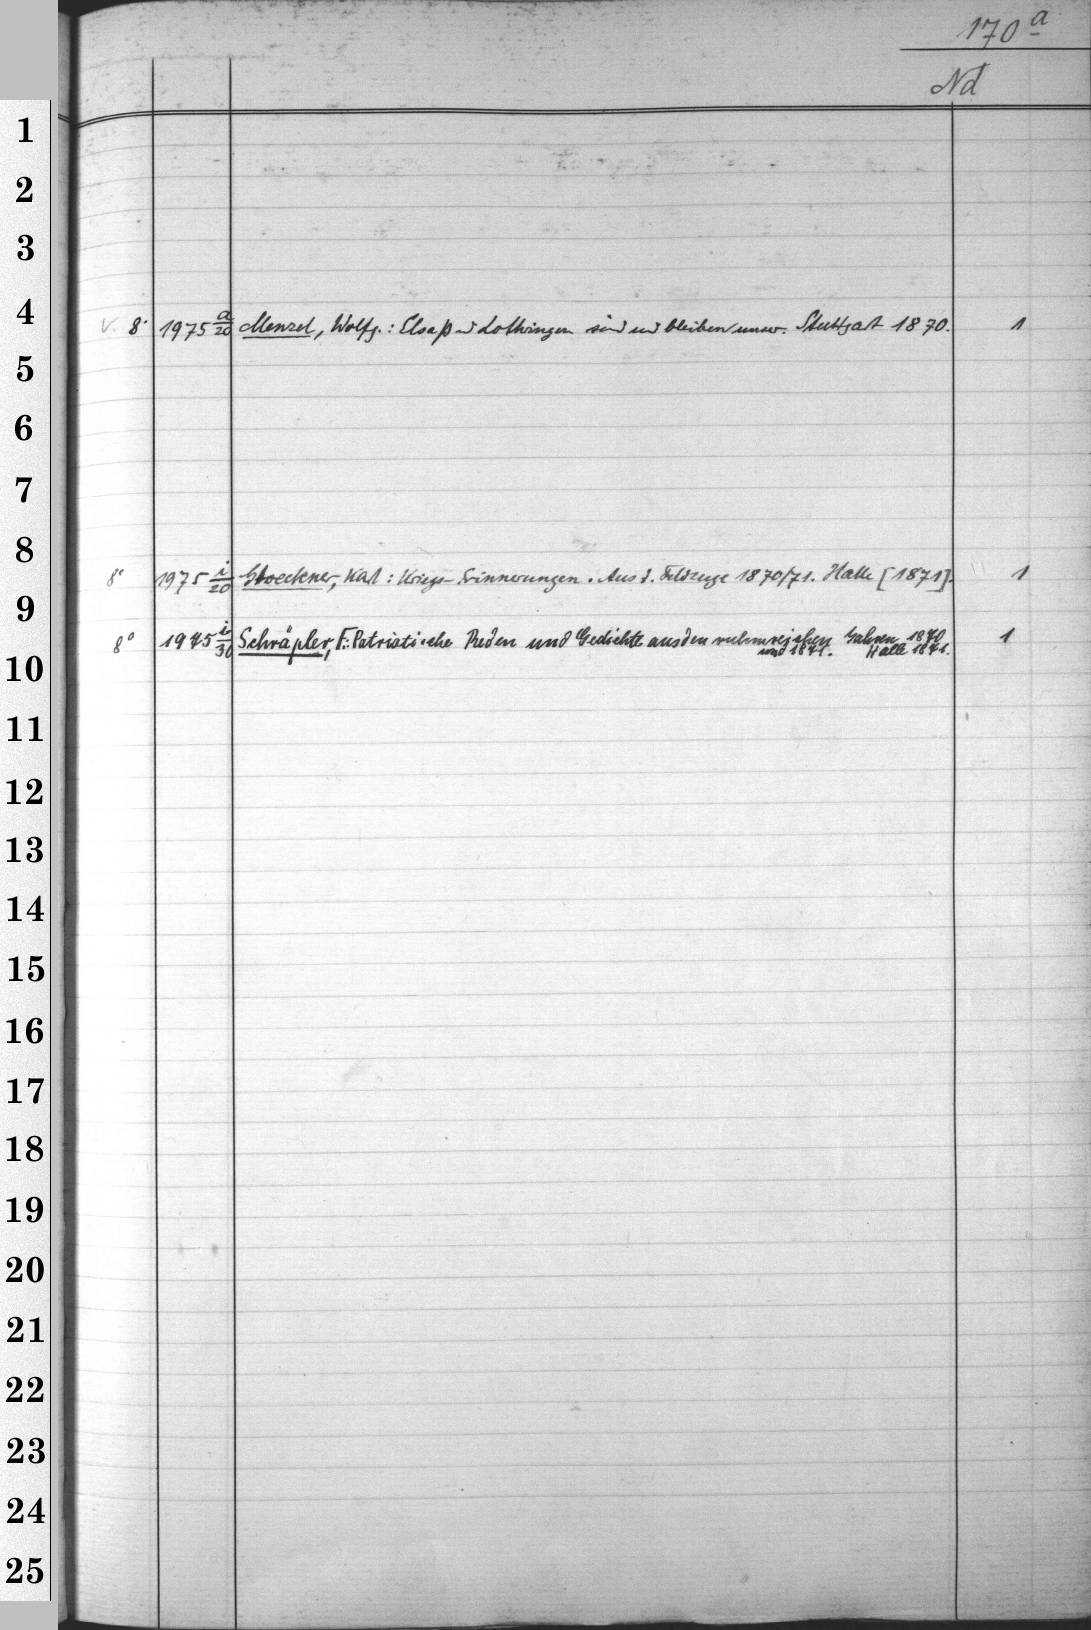 170 a
Nd
1
2
3
4
V. 8° 1975 a/20 Menzel, Wolfg.: Elsaß und Lothringen sind und bleiben unser. Stuttgart 1870. 1
5
6
7
8
8° 1975 i/20 Stoeckner, Karl: Kriegs-Erinnerungen. Aus d. Feldzuge 1870/71. Halle [1871]. 1
9
8° 1975 i/30 Schräpler, F.: Patriotische Reden und Gedichte aus den ruhmreichen Jahren 1870 1
und 1871. Halle 1871.
10
11
12
13
14
15
16
17
18
19
20
21
22
23
24
25